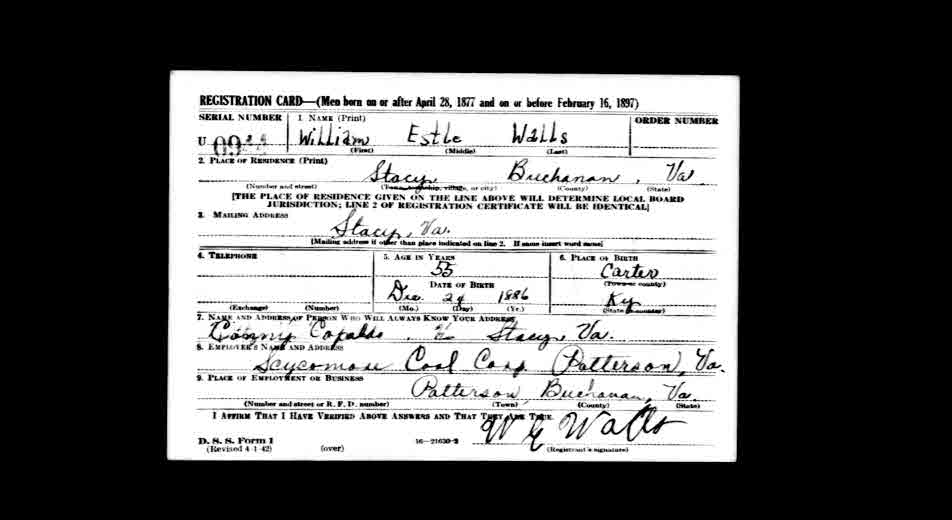 REGISTRATION CARD—(Men born on or after April 28, 1877 and on or before February 16, 1897)
SERIAL NUMBER 1. NAME (Print) ORDER NUMBER
U William Estle Walls
(First) (Middle) (Last)
2. PLACE OF RESIDENCE (Print)
Stacy Buchanan, Va
(Number and street) (Town, township, village, or city) (County) (State)
[THE PLACE OF RESIDENCE GIVEN ON THE LINE ABOVE WILL DETERMINE LOCAL BOARD
JURISDICTION; LINE 2 OF REGISTRATION CERTIFICATE WILL BE IDENTICAL]
3. MAILING ADDRESS
Stacy, Va.
[Mailing address if other than place indicated on line 2. If same insert word same]
4. TELEPHONE 5. AGE IN YEARS 6. PLACE OF BIRTH
55 Carter
DATE OF BIRTH (Town or county)
Dec. 24 1886 Ky
(Exchange) (Number) (Mo.) (Day) (Yr.) (State or country)
7. NAME AND ADDRESS OF PERSON WHO WILL ALWAYS KNOW YOUR ADDRESS
Stacy, Va.
8. EMPLOYER'S NAME AND ADDRESS
Scycomore Coal Corp Patterson, Va.
9. PLACE OF EMPLOYMENT OR BUSINESS
Patterson, Buchanan, Va
(Number and street or R. F. D. number) (Town) (County) (State)
I AFFIRM THAT I HAVE VERIFIED ABOVE ANSWERS AND THAT THEY ARE TRUE.
D. S. S. Form 1 16—21630-2 W E Walls
(Revised 4-1-42) (over) (Registrant's signature)